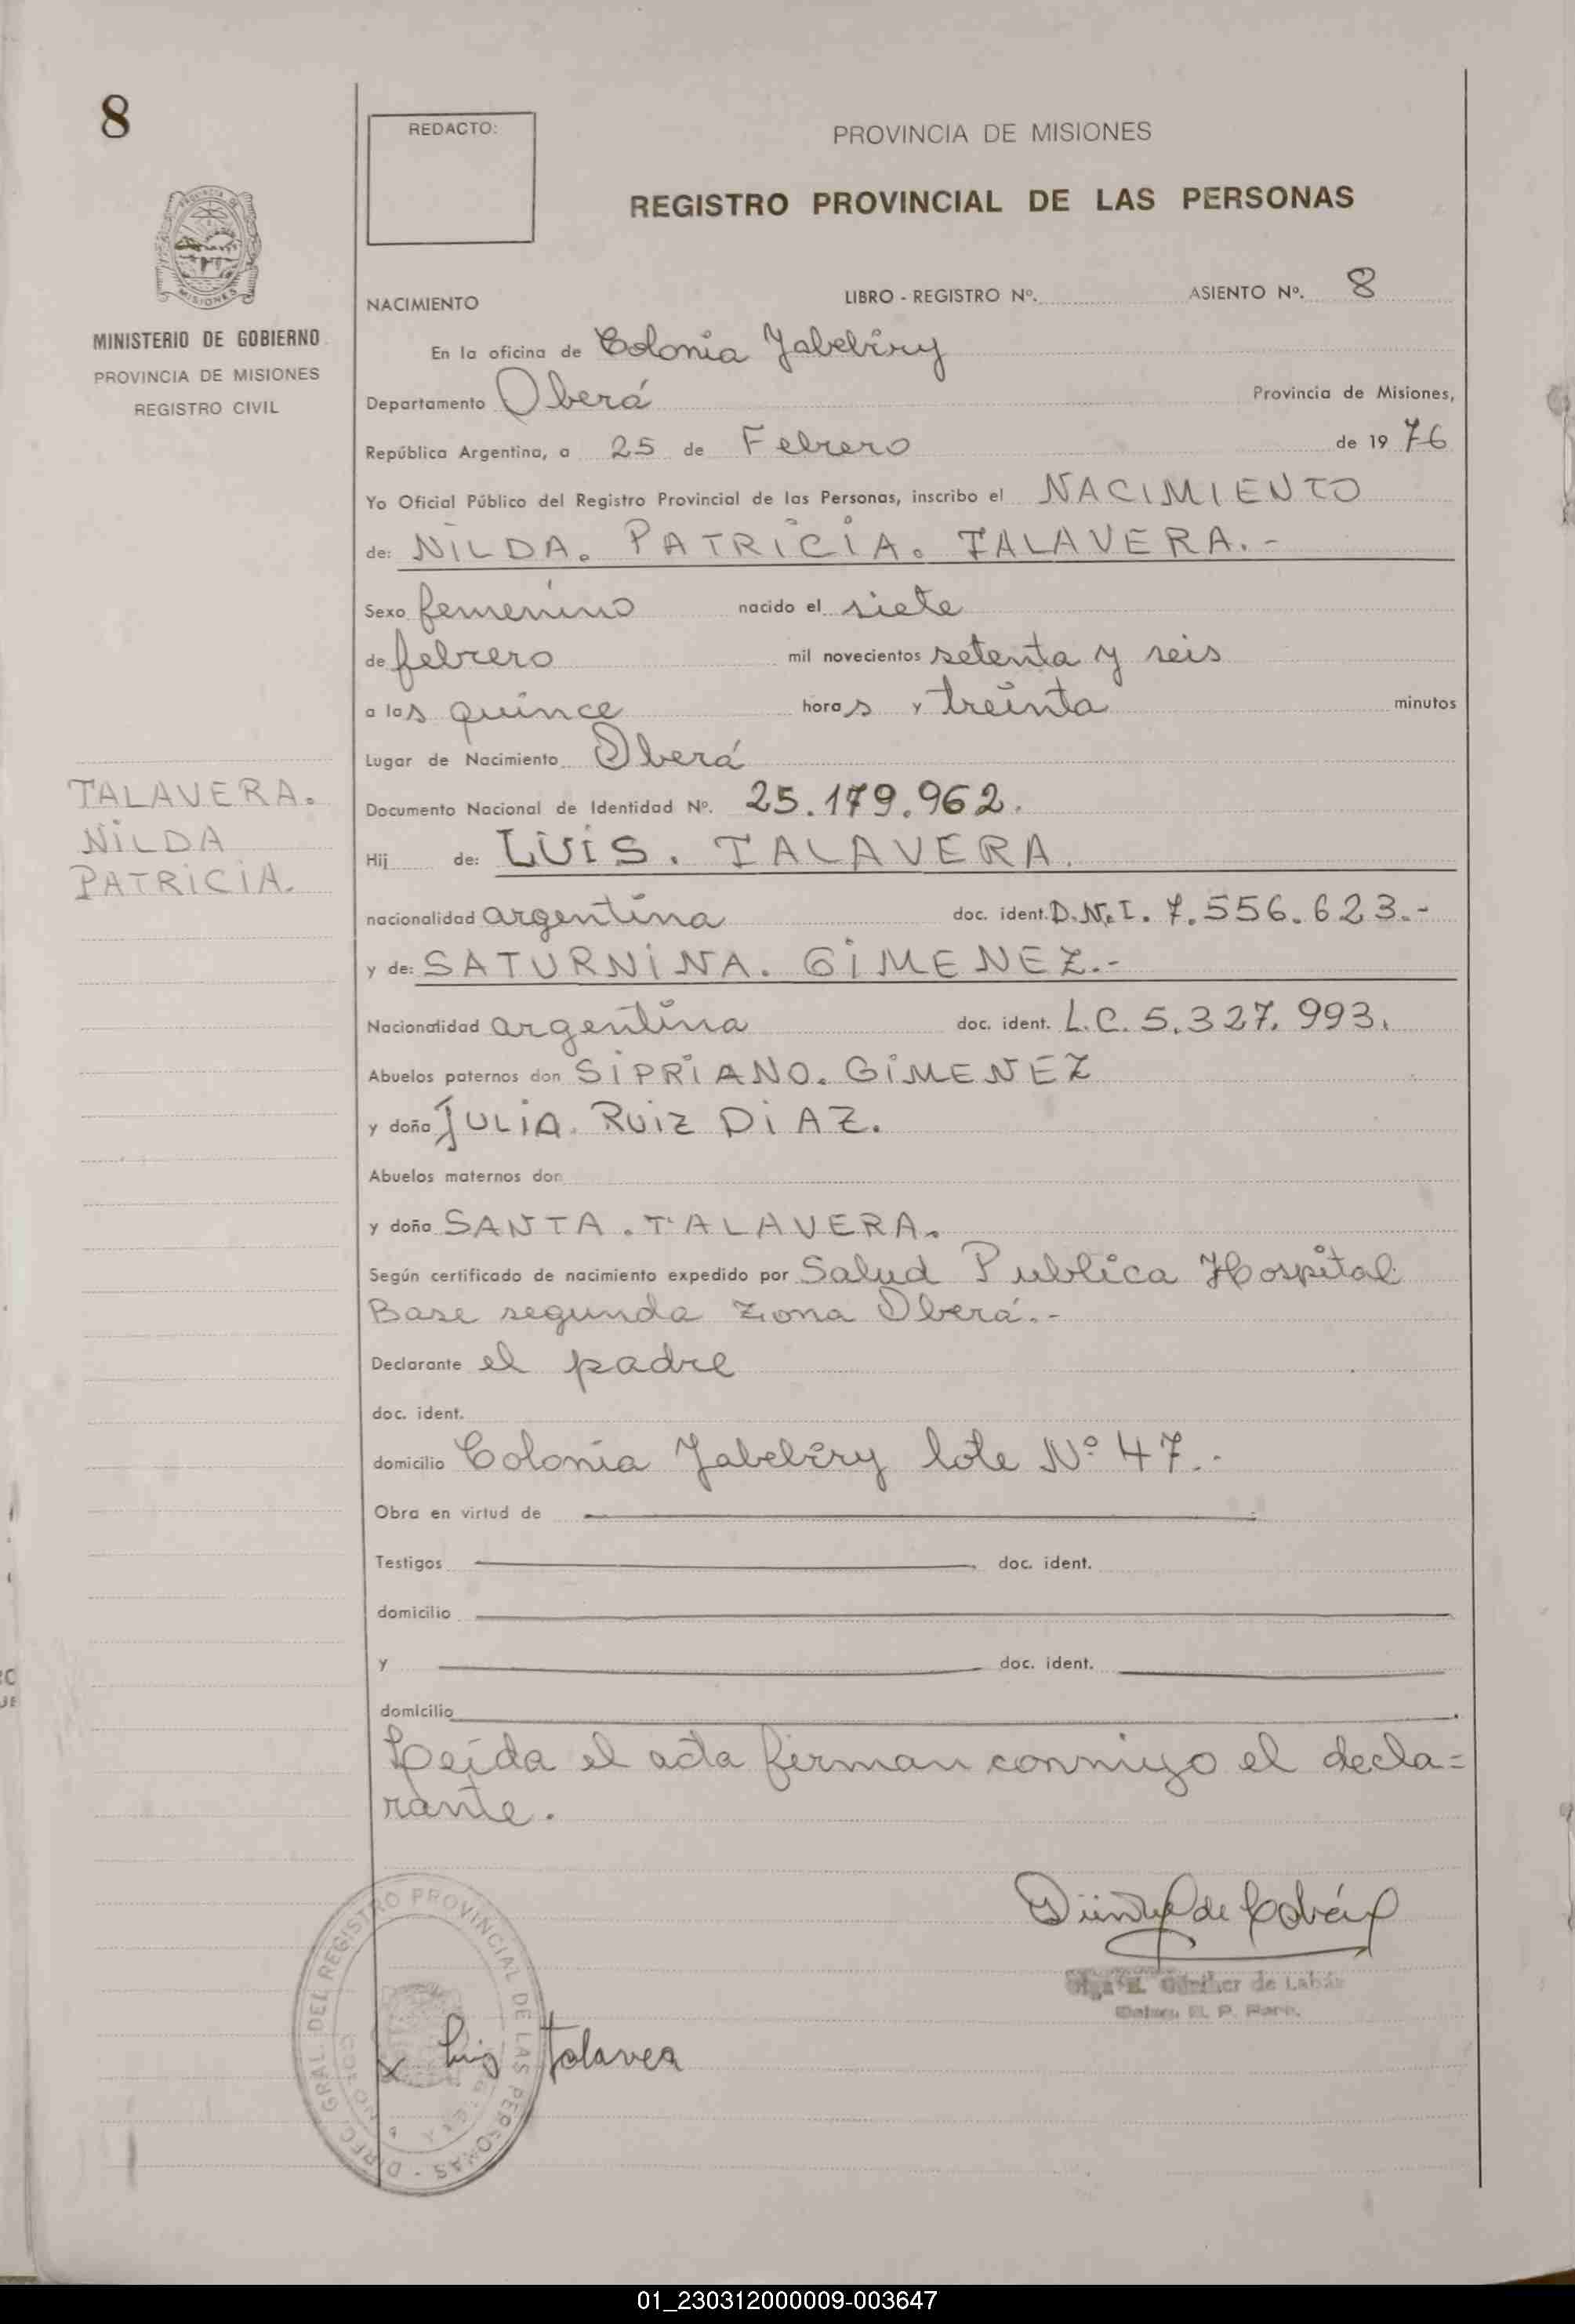 8
REDACTO:
PROVINCIA DE MISIONES
REGISTRO PROVINCIAL DE LAS PERSONAS
MINISTERIO DE GOBIERNO
PROVINCIA DE MISIONES
REGISTRO CIVIL
NACIMIENTO LIBRO - REGISTRO Nº. ASIENTO Nº. 8
En la oficina de Colonia Yabebiry
Departamento Oberá Provincia de Misiones,
República Argentina, a 25 de Febrero de 19 76
Yo Oficial Público del Registro Provincial de las Personas, inscribo el NACIMIENTO
de: NILDA. PATRICIA. TALAVERA.-
Sexo femenino nacido el siete
de febrero mil novecientos setenta y seis
a las quince horas y treinta minutos
Lugar de Nacimiento Oberá
TALAVERA.
NILDA
PATRICIA.
Documento Nacional de Identidad Nº. 25.179.962.
Hij de: LUIS. TALAVERA.
nacionalidad argentina doc. ident. D.N.I. 7.556.623.-
y de: SATURNINA. GIMENEZ.-
Nacionalidad argentina doc. ident. L.C. 5.327.993.
Abuelos paternos don SIPRIANO. GIMENEZ
y doña JULIA. RUIZ DIAZ.
Abuelos maternos don
y doña SANTA. TALAVERA.
Según certificado de nacimiento expedido por Salud Publica Hospital
Base segunda zona Oberá.-
Declarante el padre
doc. ident.
domicilio Colonia Yabebiry lote Nº 47.-
Obra en virtud de
Testigos doc. ident.
domicilio
y doc. ident.
domicilio
Leída el acta firman conmigo el decla=
rante.
Günther de Labár
DIREC. GRAL. DEL REGISTRO PROVINCIAL DE LAS PERSONAS
Luis Talavera
01_230312000009-003647